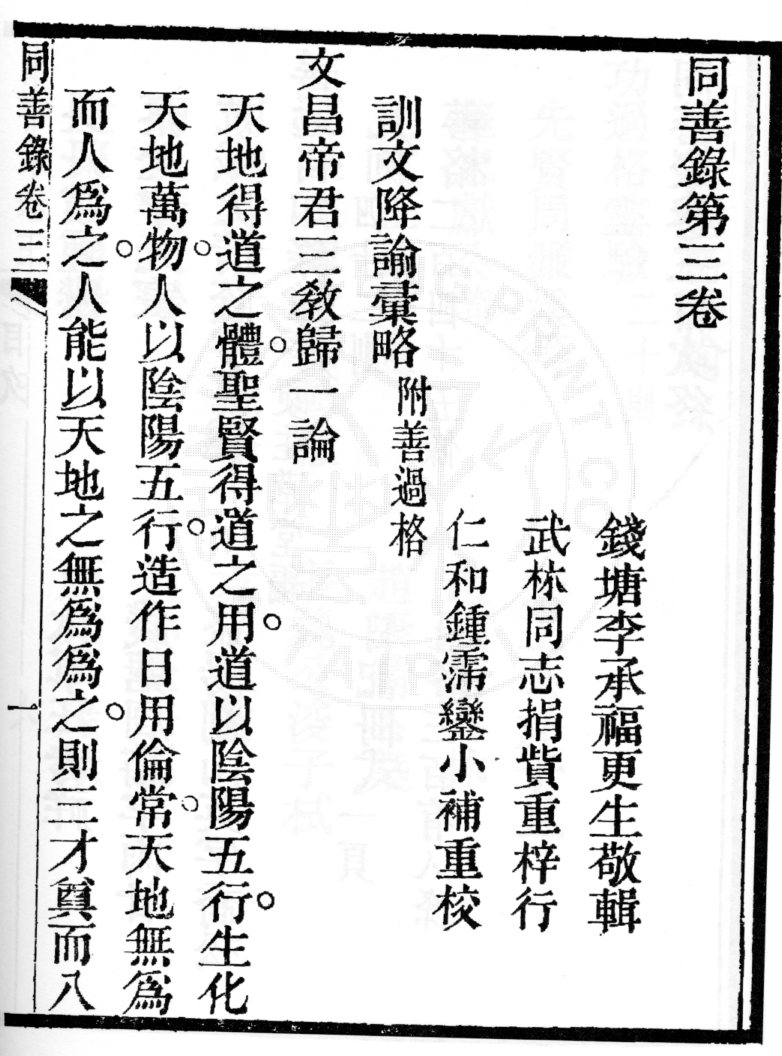 同善錄第三卷
錢塘李承福更生敬輯
武林同志捐貲重梓行
仁和鍾霈鑾小補重校
訓文降諭彙略 附善過格
文昌帝君三教歸一論
天地得道之體。聖賢得道之用。道以陰陽五行。生化
天地萬物。人以陰陽五行。造作日用倫常。天地無爲
而人爲之。人能以天地之無爲爲之。則三才奠而八
同善錄卷三
一
PRINT CO
TAIPEI